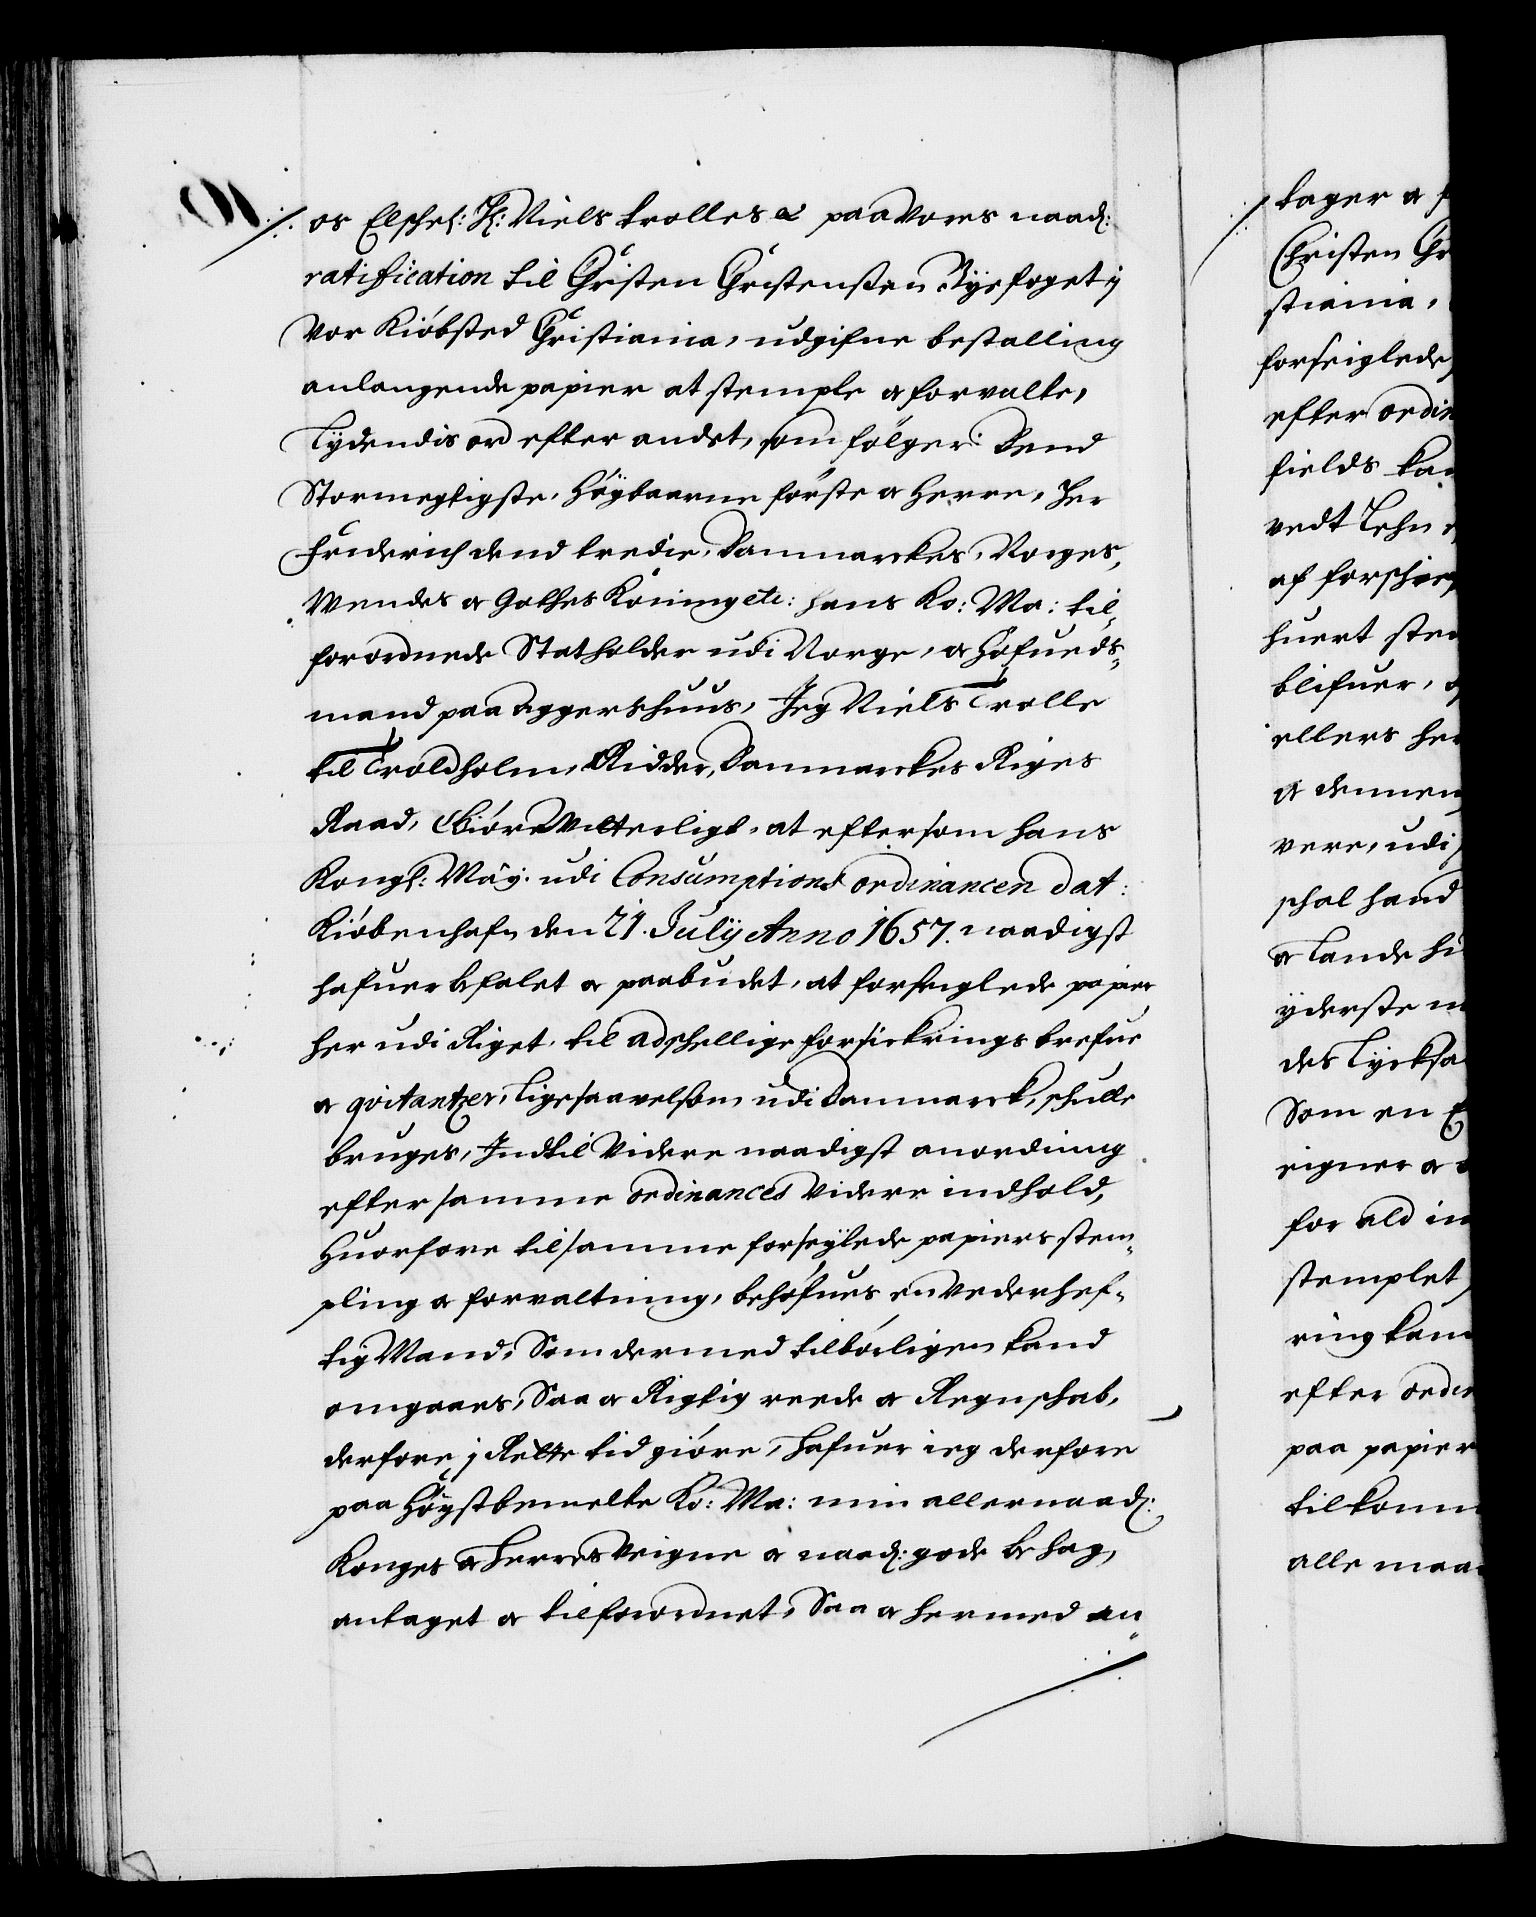 os Elschel: H: Niels trolles &c paa Vores naad:
ratification til Christen Christensen Byefoget j
Vor Kiöbsted Christiania, udgifne bestalling
anlangende papier at stemple & forvalte,
Lydendis ord efter andet, som fölger: Dend
Stormegtigste, Högbaarne förste & Herre, Her
Friderich dend tredie, Danmarckes, Norges,
Wendes & Gothes Konning etc: Hans Ko: Ma: til¬
forordnede Statholder udi Norge, & Höfueds¬
mand paa Aggershuus, Jeg Niels Trolle
til Troldholm, Ridder, Danmarckes Riges
Raad, Giöre Witterligt, at eftersom hans
Kongl: May: udi Consumptions ordinancen dat:
Kiöbenhafn den 21. Julij Anno 1657. naadigst
hafuer befalet & paabudet, at forseiglede papier
her udi Riget, til adschellige forsickrings brefue
& qvitantzer, Ligesaavelsom udi Danmarck, schulle
bruges, Indtil Videre naadigst anordning
efter samme ordinances Videre indhold,
Huorfore til samme forseylede papiers stem¬
pling & forvaltning, behöfues en Vederhef¬
tig Mand, Som dermed tilbörligen kand
omgaaes, Saa & Rigtig reede & Regnschab,
derfore j Rette tid giöre, Hafuer ieg derfore
paa Höystbemelte Ko: Ma: min allernaad:
Konges & Herres Veigne & naad: gode behag,
antaget & tilforordnet, Saa & hermed an¬
tager &
Christen Chr
stiania,
forseiglede
efter ordin
fields
vedt Lehn
af forschie
huert sted
blifuer,
ellers her
& dennem
vere, udi
schal hand
& Lande
yderste
des Lycksa
Som en
eigner &
for ald
stemplet
ring kand
efter ordin
paa papier
tilkomm
alle maa